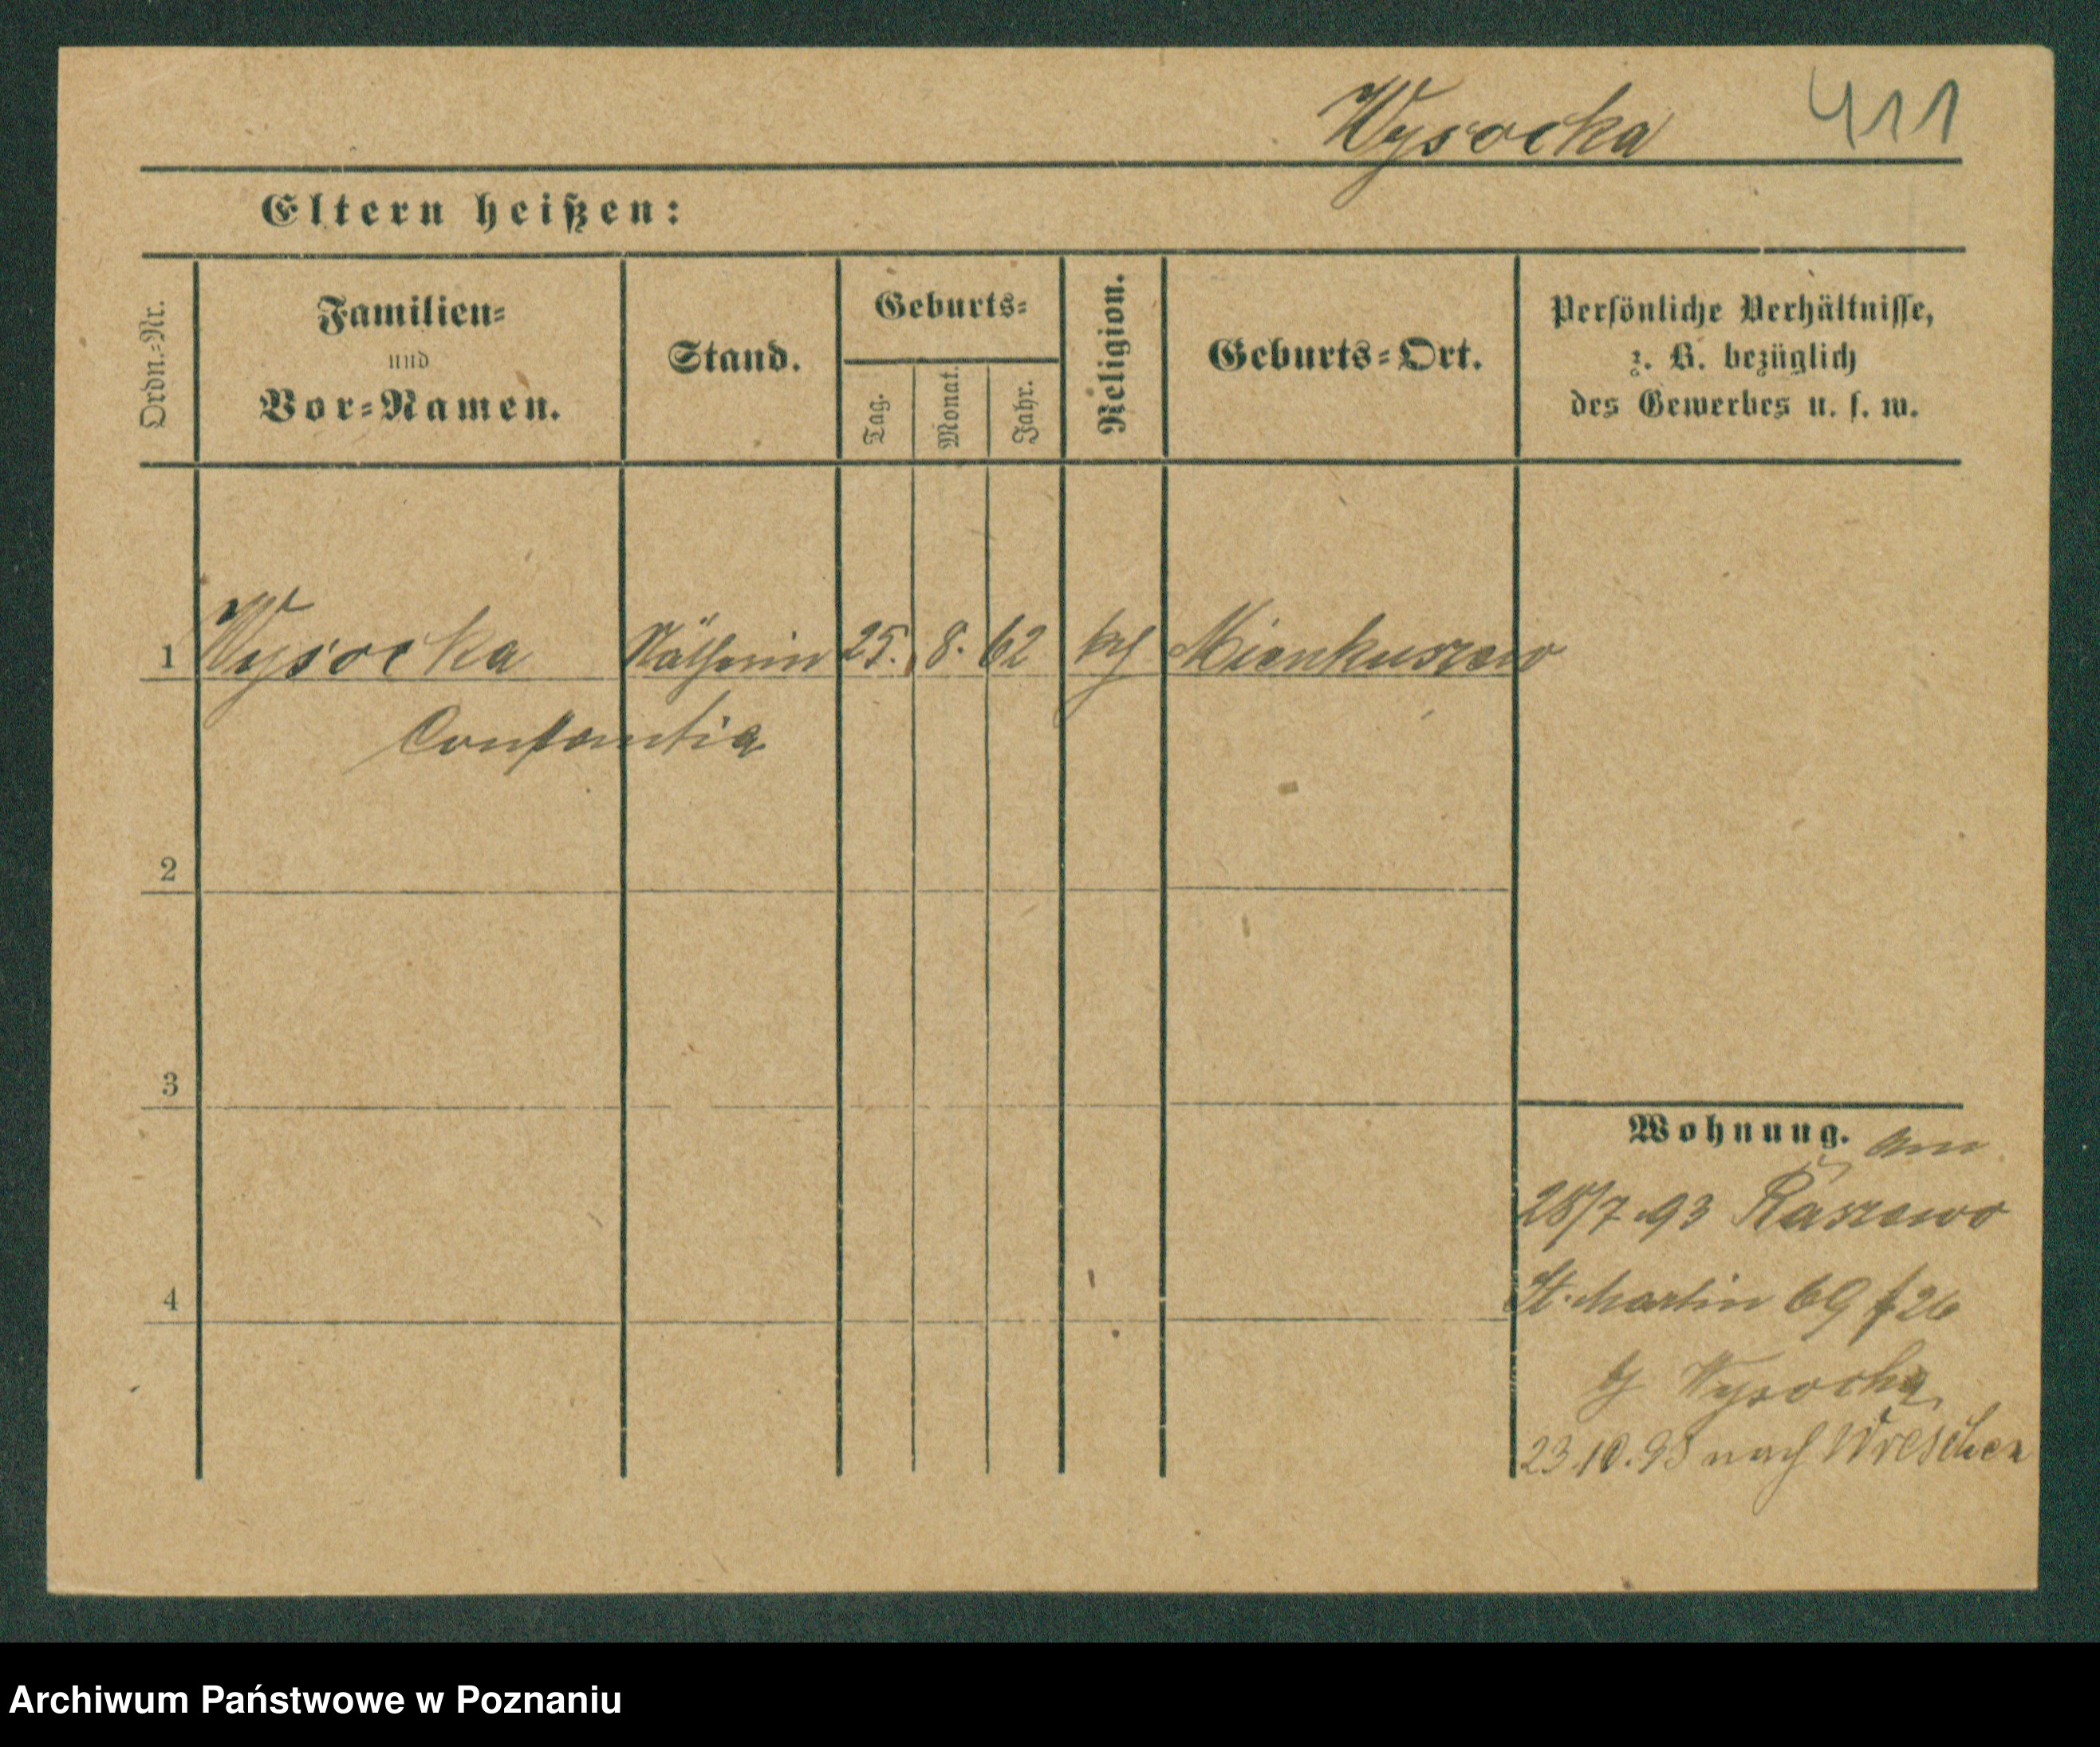 Wysocka 411
Eltern heißen:
Ordn.-Nr.
Familien-
und
Vor-Namen.
Stand.
Geburts-
Tag.
Monat.
Jahr.
Religion.
Geburts-Ort.
Persönliche Verhältnisse,
z. B. bezüglich
des Gewerbes u. s. w.
1 Wysocka Näherin 25. 8. 62 kth Mienkuszewo
Constantia
2
3
4
Wohnung. am
28/7 93 Raszewo
St. Martin 69
Wysocka
23.10.93 nach Wreschen
Archiwum Państwowe w Poznaniu